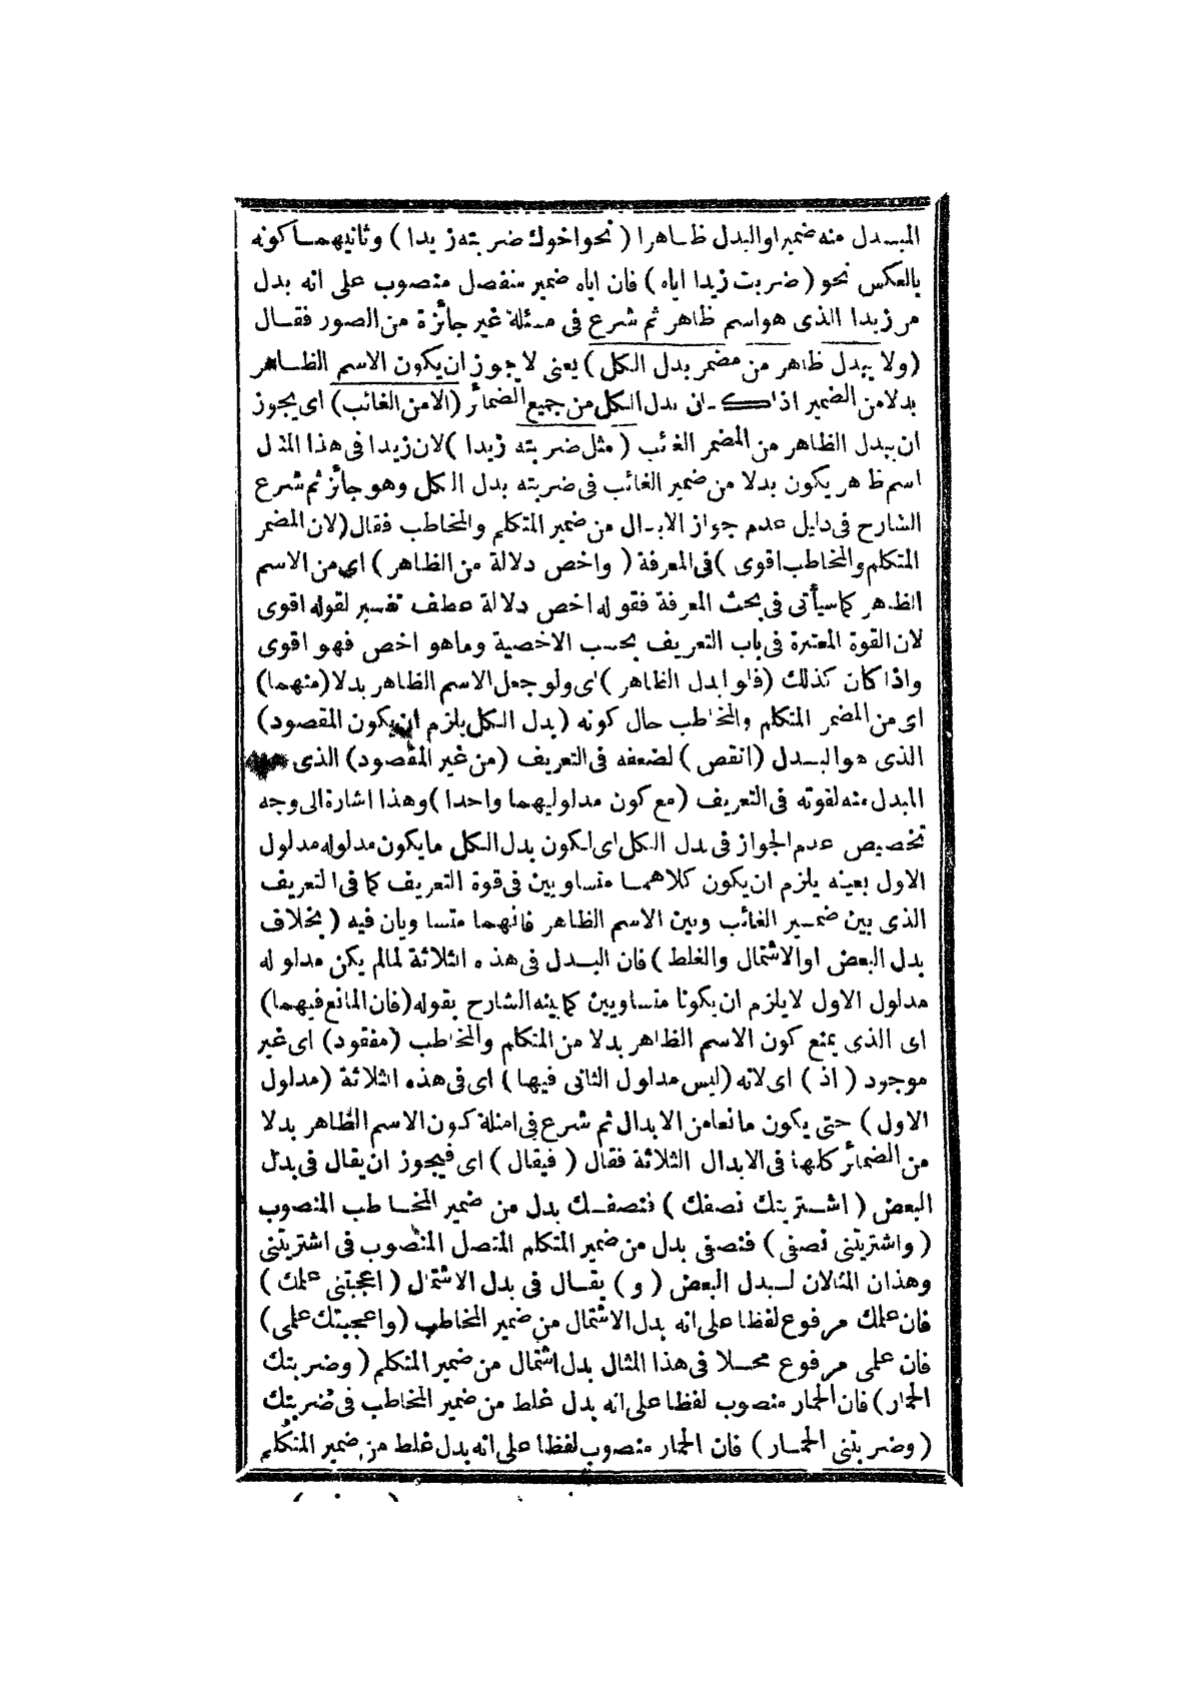 المبدل منه ضميرا والبدل ظاهرا ( نحو اخوك ضربته زيدا ) وثانيهما كونه
بالعكس نحو ( ضربت زيدا اياه ) فان اياه ضمير منفصل منصوب على انه بدل
من زيدا الذى هو اسم ظاهر ثم شرع فى مسئلة غير جائزة من الصور فقال
( ولا يبدل ظاهر من مضمر بدل الكل ) يعنى لا يجوز ان يكون الاسم الظاهر
بدلا من الضمير اذا كان بدل الكل من جميع الضمائر ( الا من الغائب ) اى يجوز
ان يبدل الظاهر من المضمر الغائب ( مثل ضربته زيدا ) لان زيدا فى هذا المثال
اسم ظاهر يكون بدلا من ضمير الغائب فى ضربته بدل الكل وهو جائز ثم شرع
الشارح فى دليل عدم جواز الابدال من ضمير المتكلم والمخاطب فقال ( لان المضمر
المتكلم والمخاطب اقوى ) فى المعرفة ( واخص دلالة من الظاهر ) اى من الاسم
الظاهر كما سيأتى فى بحث المعرفة فقوله اخص دلالة عطف تفسير لقوله اقوى
لان القوة المعتبرة فى باب التعريف بحسب الاخصية وما هو اخص فهو اقوى
واذا كان كذلك ( فلو ابدل الظاهر ) اى ولو جعل الاسم الظاهر بدلا ( منهما )
اى من المضمر المتكلم والمخاطب حال كونه ( بدل الكل يلزم ان يكون المقصود )
الذى هو البدل ( انقص ) لضعفه فى التعريف ( من غير المقصود ) الذى
المبدل منه لقوته فى التعريف ( مع كون مدلوليهما واحدا ) وهذا اشارة الى وجه
تخصيص عدم الجواز فى بدل الكل اى لكون بدل الكل ما يكون مدلوله مدلول
الاول بعينه يلزم ان يكون كلاهما متساويين فى قوة التعريف كما فى التعريف
الذى بين ضمير الغائب وبين الاسم الظاهر فانهما متساويان فيه ( بخلاف
بدل البعض او الاشتمال والغلط ) فان البدل فى هذه الثلاثة لما لم يكن مدلوله
مدلول الاول لا يلزم ان يكونا متساويين كما بينه الشارح بقوله ( فان المانع فيهما )
اى الذى يمنع كون الاسم الظاهر بدلا من المتكلم والمخاطب ( مفقود ) اى غير
موجود ( اذ ) اى لانه ( ليس مدلول الثانى فيها ) اى فى هذه الثلاثة ( مدلول
الاول ) حتى يكون مانعا من الابدال ثم شرع فى امثلة كون الاسم الظاهر بدلا
من الضمائر كلها فى الابدال الثلاثة فقال ( فيقال ) اى فيجوز ان يقال فى بدل
البعض ( اشتريتك نصفك ) فنصفك بدل من ضمير المخاطب المنصوب
( واشتريتنى نصفى ) فنصفى بدل من ضمير المتكلم المتصل المنصوب فى اشتريتنى
وهذان المثالان لبدل البعض ( و ) يقال فى بدل الاشتمال ( اعجبتنى علمك )
فان علمك مرفوع لفظا على انه بدل الاشتمال من ضمير المخاطب ( واعجبتك علمى )
فان علمى مرفوع محلا فى هذا المثال بدل اشتمال من ضمير المتكلم ( وضربتك
الحمار ) فان الحمار منصوب لفظا على انه بدل غلط من ضمير المخاطب فى ضربتك
( وضربتنى الحمار ) فان الحمار منصوب لفظا على انه بدل غلط من ضمير المتكلم